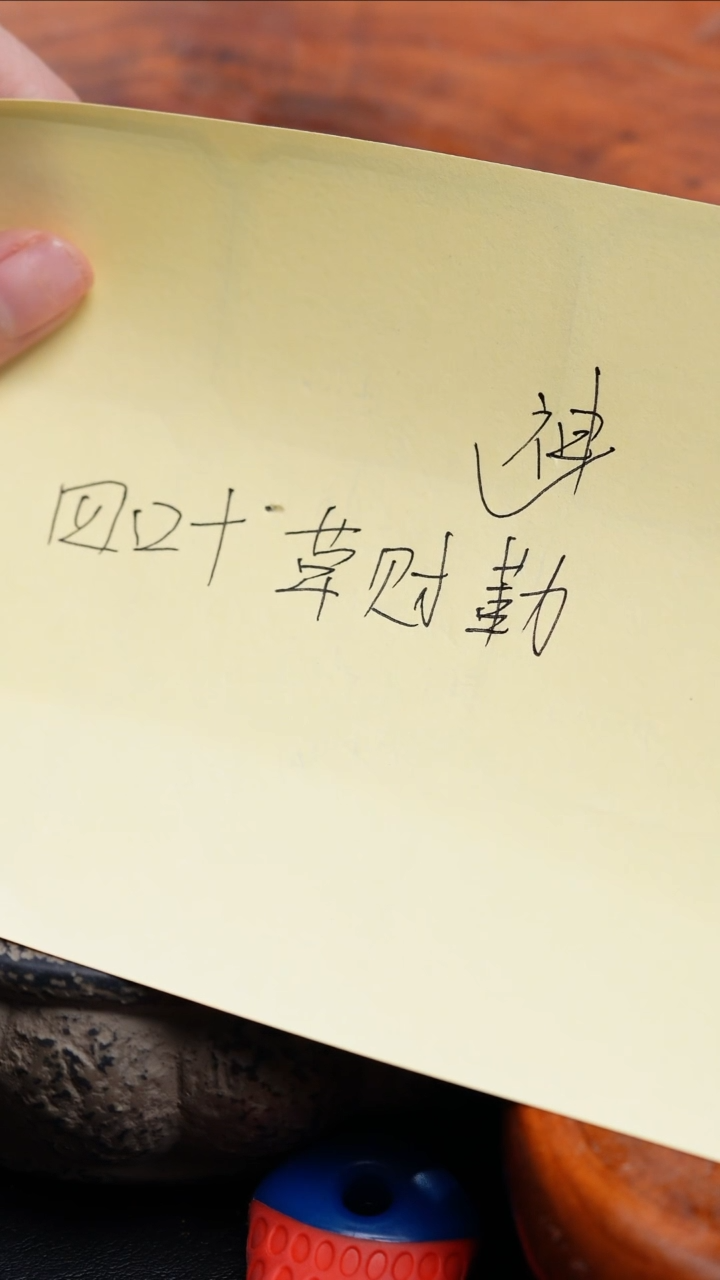 四叶草财神勤